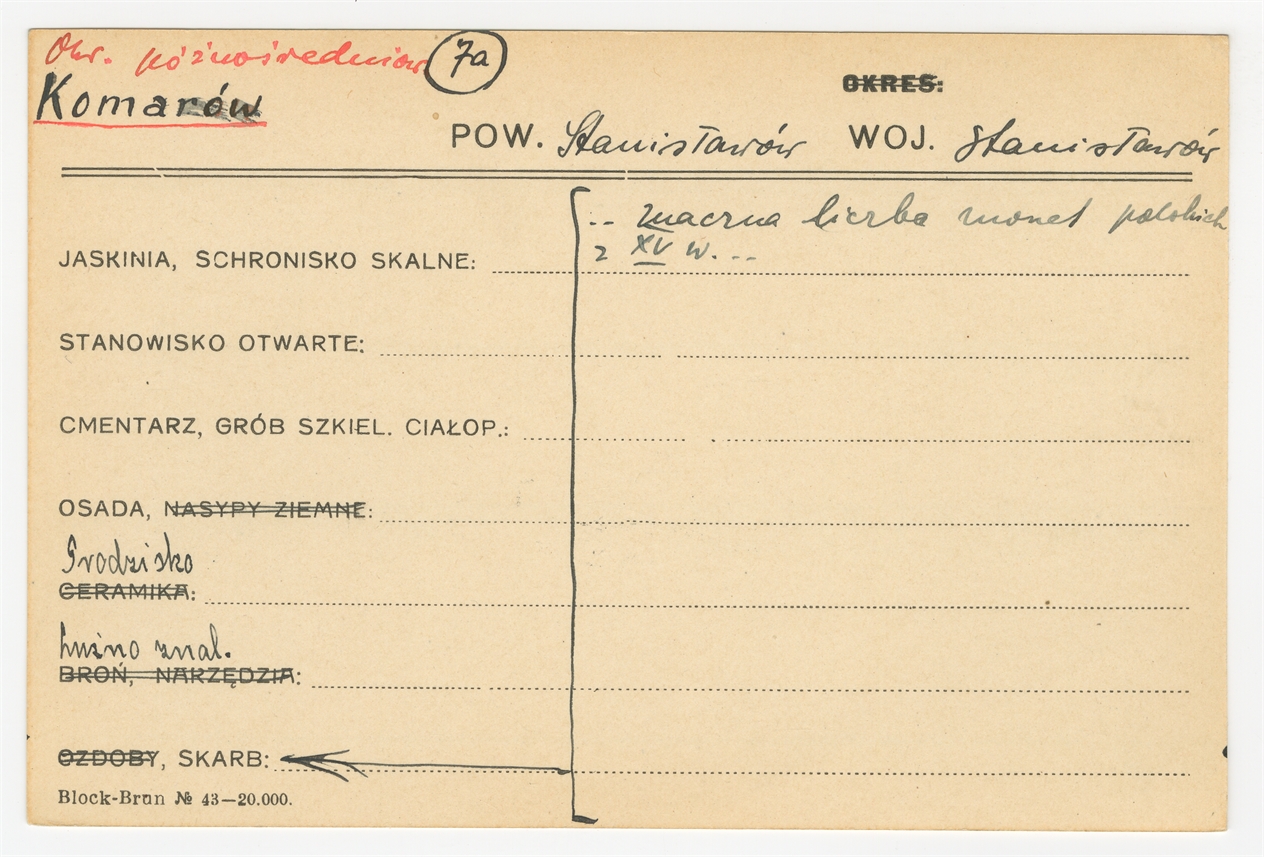 Okr. późnośredniow
7a
Komarów
OKRES:
POW. Stanisławów WOJ. Stanisławów
.. znaczna liczba monet polskich
z XV w. ...
JASKINIA, SCHRONISKO SKALNE:
STANOWISKO OTWARTE:
CMENTARZ, GRÓB SZKIEL. CIAŁOP.:
OSADA, NASYPY ZIEMNE:
Grodzisko
CERAMIKA:
Luźno znal.
BROŃ, NARZĘDZIA:
OZDOBY, SKARB:
Block-Brun № 43—20.000.